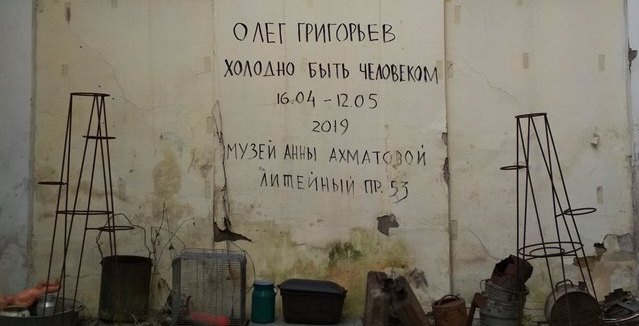 ОЛЕГ ГРИГОРЬЕВ
ХОЛОДНО БЫТЬ ЧЕЛОВЕКОМ
16.04 – 12.05
2019
МУЗЕЙ АННЫ АХМАТОВОЙ
ЛИТЕЙНЫЙ ПР. 53